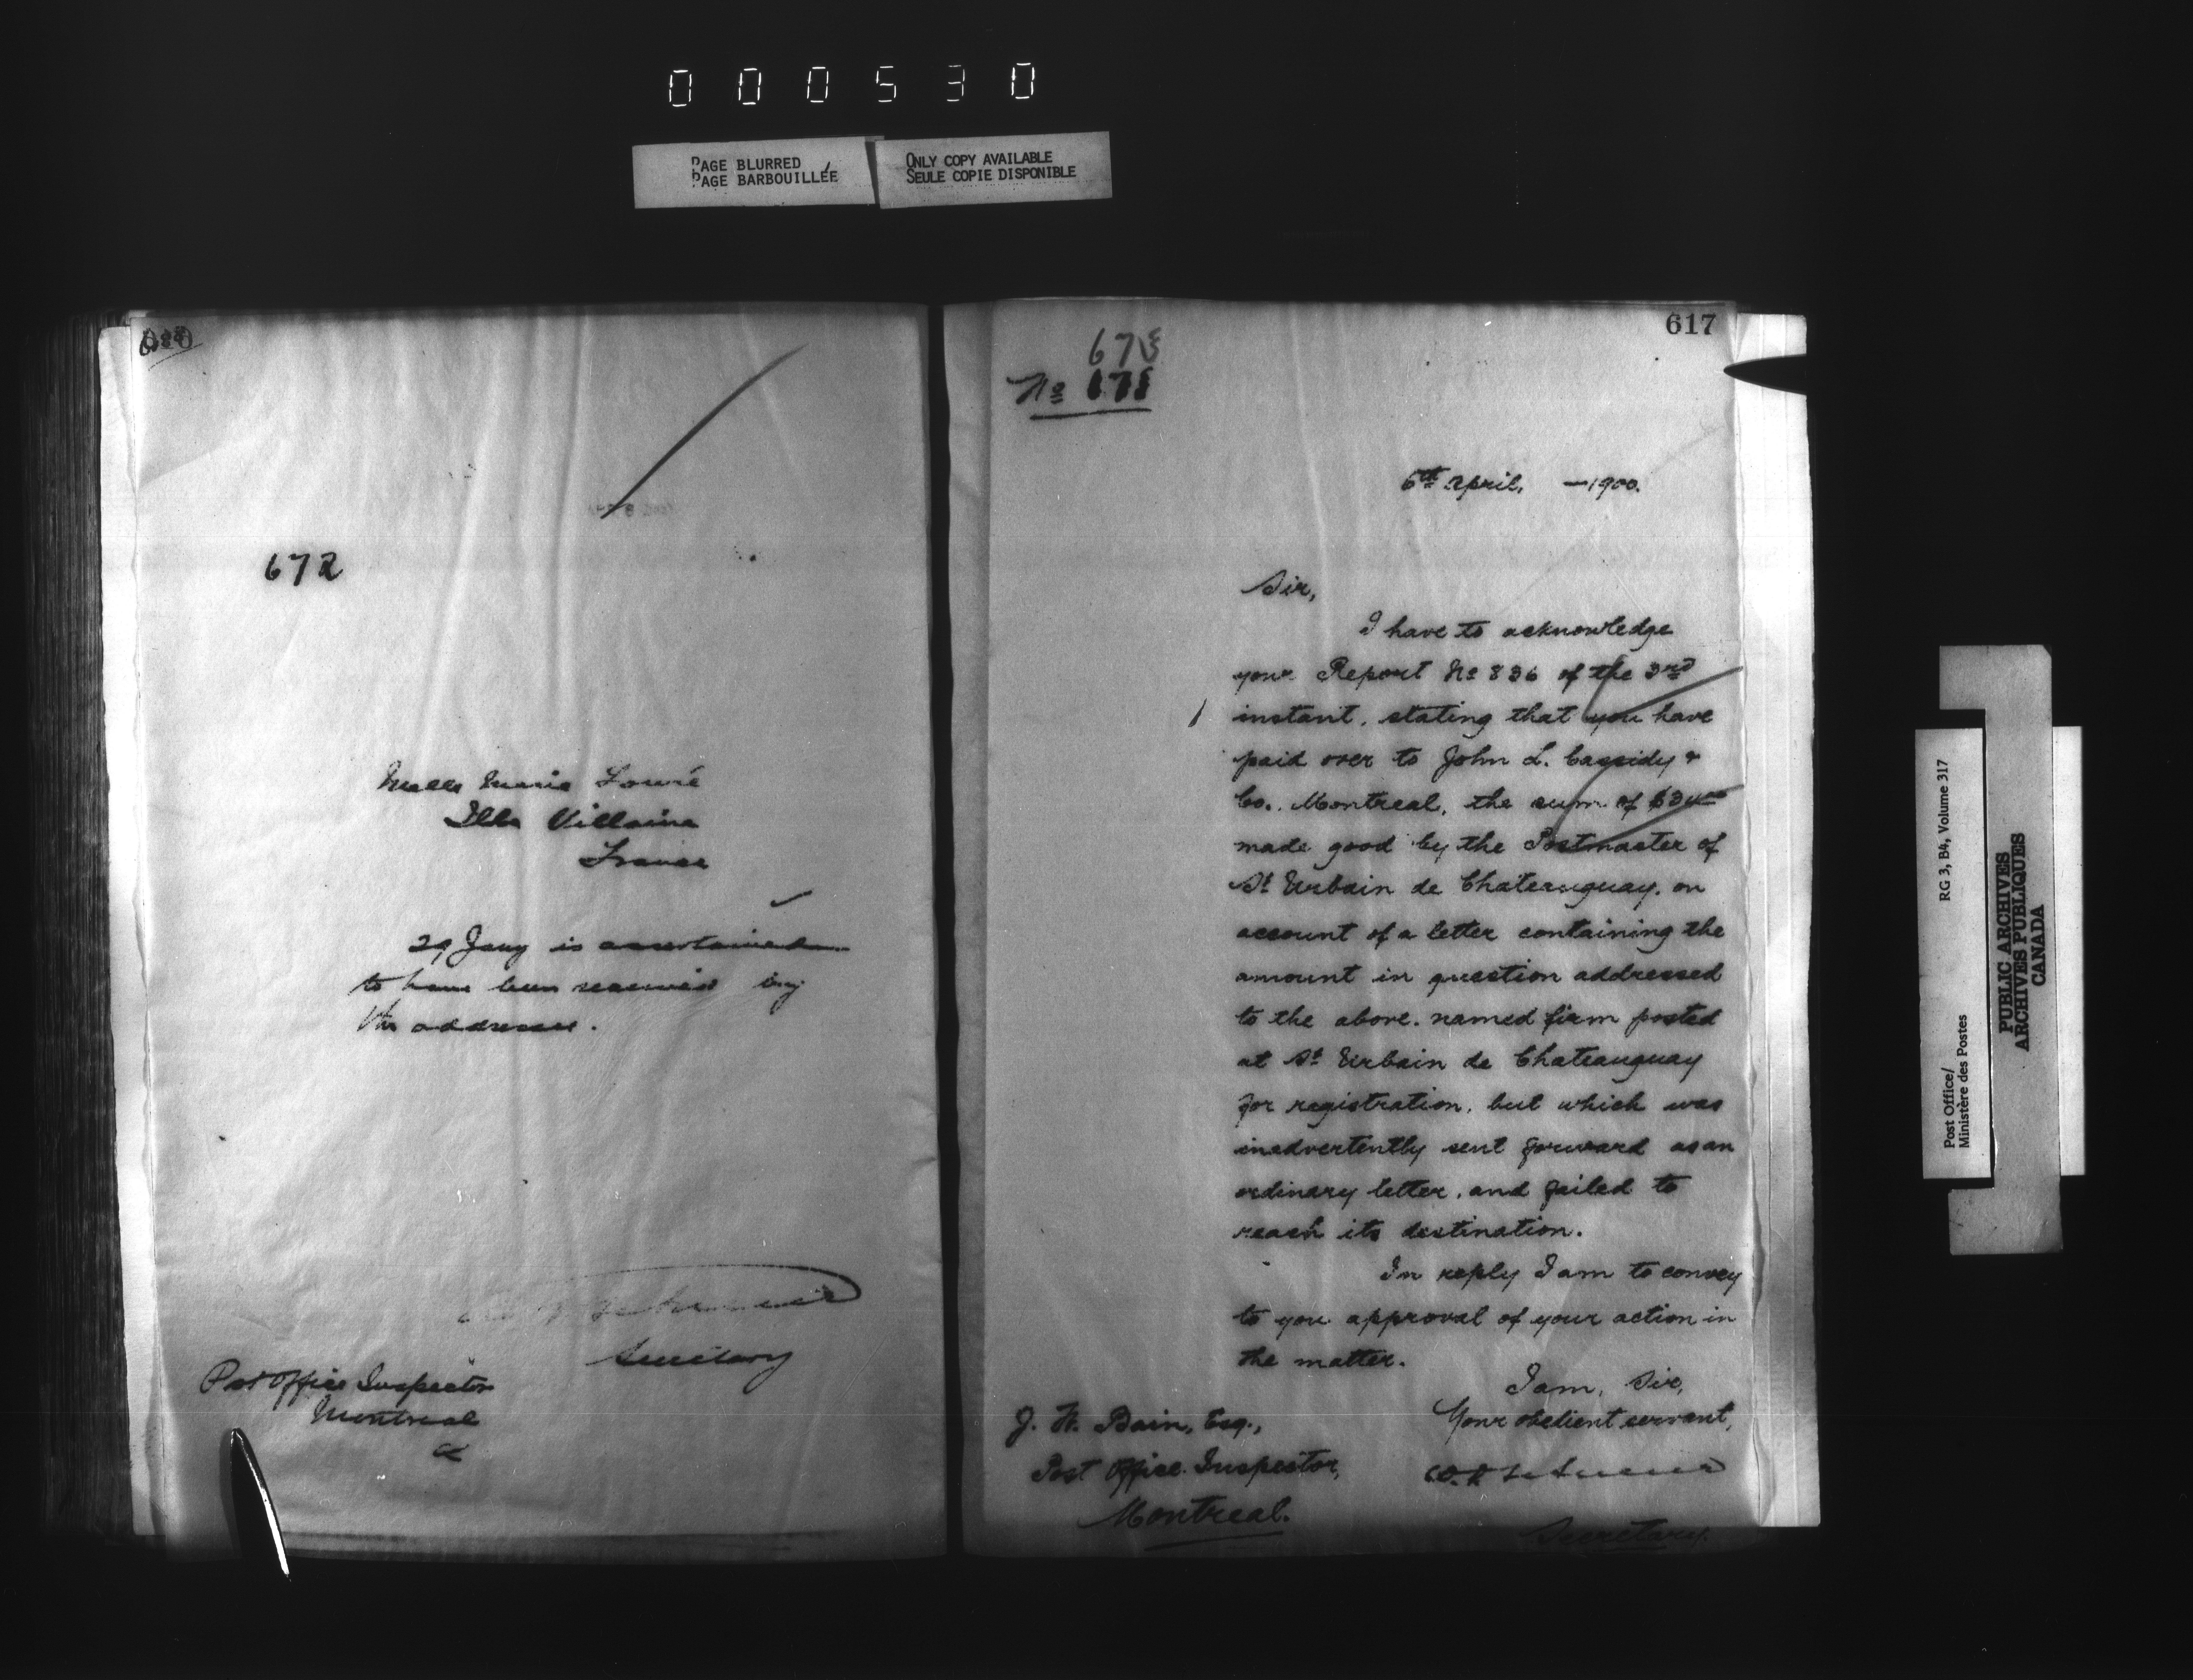 000530
PAGE BLURRED
PAGE BARBOUILLÉE
ONLY COPY AVAILABLE
SEULE COPIE DISPONIBLE
672
Melle Marie Louré
Ille Villaine
France
29 Jany is ascertained
to have been received by
the addressee.
Secretary
Post Office Inspector
Montreal
617
No
6th April, —1900.
Sir,
I have to acknowledge
your Report No 836 of the 3rd
instant, stating that you have
paid over to John L. Cassidy &
Co., Montreal, the sum of
made good by the Postmaster of
St Urbain de Chateauguay, on
account of a letter containing the
amount in question addressed
to the above-named firm posted
at St Urbain de Chateauguay
for registration, but which was
inadvertently sent forward as an
ordinary letter, and failed to
reach its destination.
In reply I am to convey
to you approval of your action in
the matter.
I am, Sir,
Your obedient servant,
Secretary.
J. H. Bain, Esq.,
Post Office Inspector,
Montreal.
Post Office/
Ministère des Postes
RG 3, B4, Volume 317
PUBLIC ARCHIVES
ARCHIVES PUBLIQUES
CANADA